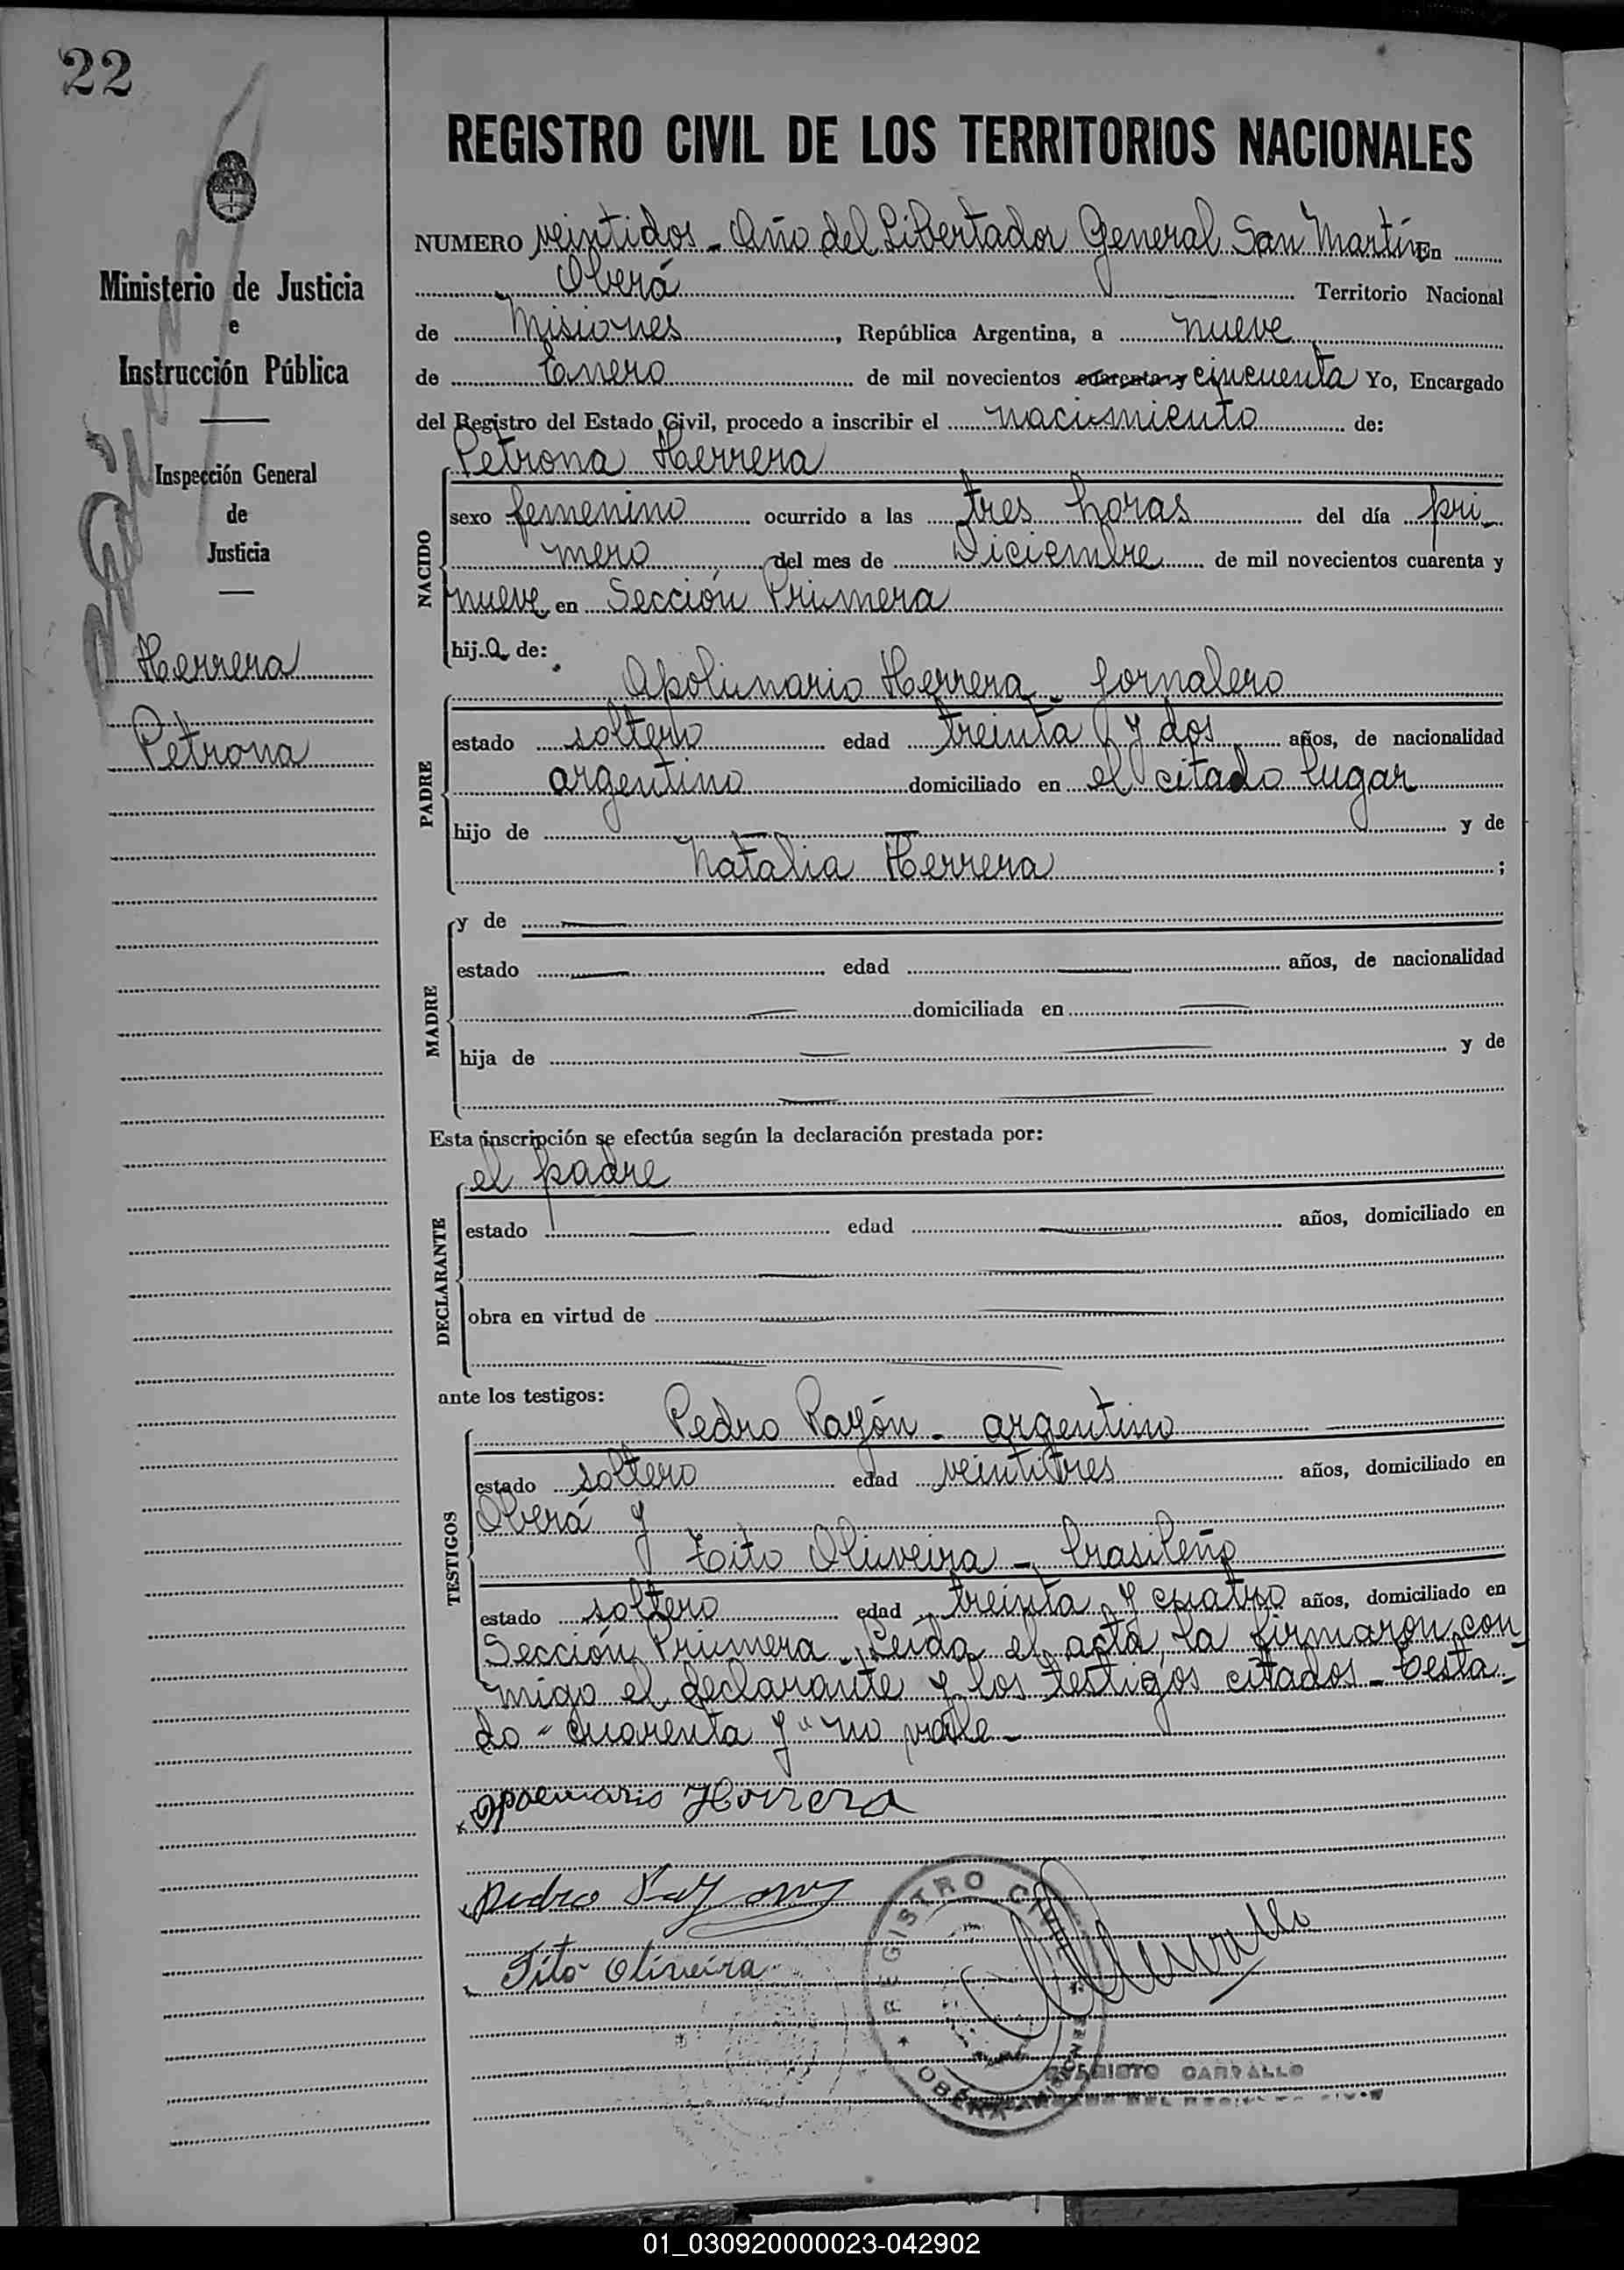 22
REGISTRO CIVIL DE LOS TERRITORIOS NACIONALES
Ministerio de Justicia
e
Instrucción Pública
Inspección General
de
Justicia
Herrera
Petrona
NUMERO veintidos - Año del Libertador General San Martín En
Oberá Territorio Nacional
de Misiones, República Argentina, a nueve
de Enero de mil novecientos cuarenta y cincuenta Yo, Encargado
del Registro del Estado Civil, procedo a inscribir el nacimiento de:
Petrona Herrera
NACIDO
sexo femenino ocurrido a las tres horas del día pri-
mero del mes de Diciembre de mil novecientos cuarenta y
nueve en Sección Primera
hija de:
Apolinario Herrera - jornalero
PADRE
estado soltero edad treinta y dos años, de nacionalidad
argentino domiciliado en el citado lugar
hijo de — — y de
Natalia Herrera ;
MADRE
y de —
estado — edad — años, de nacionalidad
— domiciliada en —
hija de — — y de
— —
Esta inscripción se efectúa según la declaración prestada por:
el padre
DECLARANTE
estado — edad — años, domiciliado en
— —
obra en virtud de — —
— —
ante los testigos:
Pedro Payón - argentino
TESTIGOS
estado soltero edad veintitres años, domiciliado en
Oberá y
Tito Oliveira - brasileño
estado soltero edad treinta y cuatro años, domiciliado en
Sección Primera - Leída el acta, la firmaron con-
migo el declarante y los testigos citados - Testa-
do "cuarenta y" no vale -
Herrera
Pedro
Tito Oliveira
REGISTRO CIVIL
OBERÁ MISIONES
CARVALLO
01_030920000023-042902